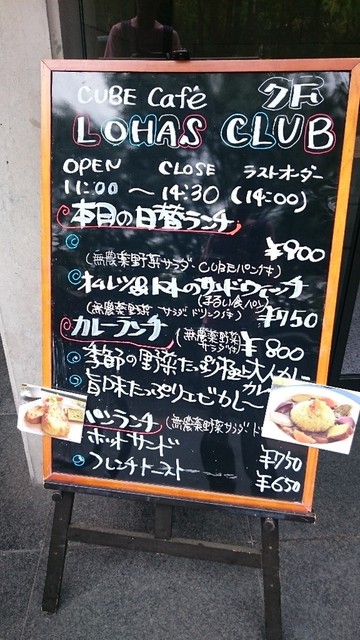 CUBE Café
LOHAS CLUB
OPEN CLOSE ラストオーダー
11:00 ～ 14:30 (14:00)
本日の日替ランチ
¥900
(無農薬野菜サラダ・CUBEパン付)
¥750
(無農薬野菜サラダ・ドリンク付)
カレーランチ (無農薬野菜サラダ付) ¥800
季節の野菜たっぷり極上大人カレー
旨味たっぷりエビカレー
パンランチ (無農薬野菜サラダ・ド
ホットサンド ¥750
フレンチトースト ¥650